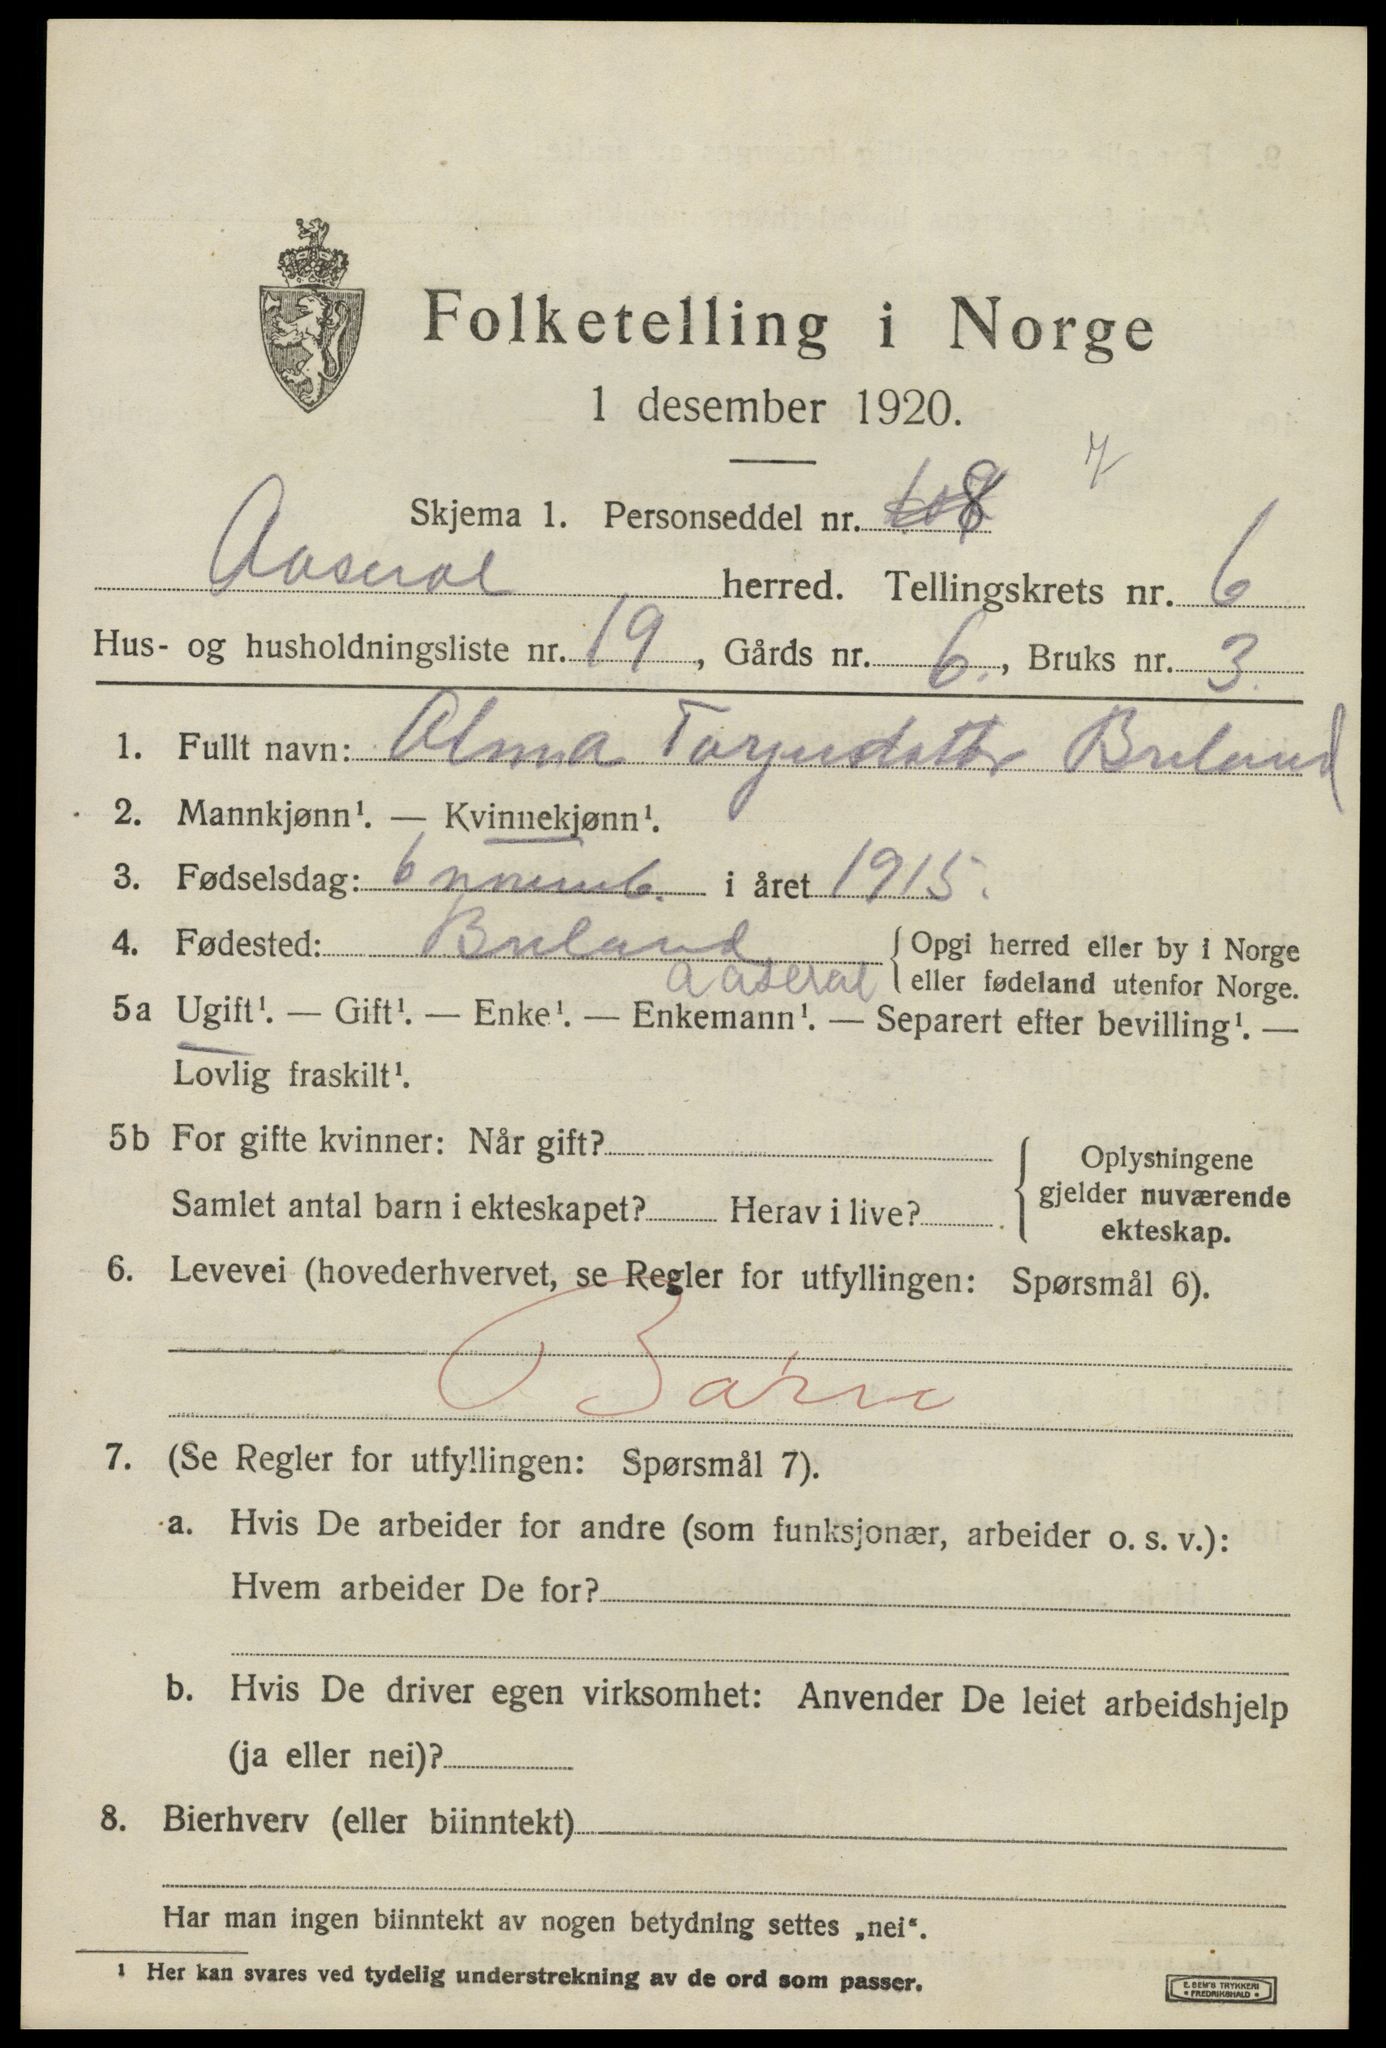 Folketelling i Norge
1 desember 1920.
7
Skjema 1. Personseddel nr. 8
Aaseral herred. Tellingskrets nr. 6
Hus- og husholdningsliste nr. 19, Gårds nr. 6., Bruks nr. 3.
1. Fullt navn: Alma Torjusdatter Breland
2. Mannkjønn¹. — Kvinnekjønn¹.
3. Fødselsdag: 6 novemb. i året 1915.
4. Fødested: Breland { Opgi herred eller by i Norge
Aaseral eller fødeland utenfor Norge.
5a Ugift¹. — Gift¹. — Enke¹. — Enkemann¹. — Separert efter bevilling¹. —
Lovlig fraskilt¹.
5b For gifte kvinner: Når gift? { Oplysningene
gjelder nuværende
Samlet antal barn i ekteskapet? Herav i live?
ekteskap.
6. Levevei (hovederhvervet, se Regler for utfyllingen: Spørsmål 6).
Barn
7. (Se Regler for utfyllingen: Spørsmål 7).
a. Hvis De arbeider for andre (som funksjonær, arbeider o. s. v.):
Hvem arbeider De for?
b. Hvis De driver egen virksomhet: Anvender De leiet arbeidshjelp
(ja eller nei)?
8. Bierhverv (eller biinntekt)
Har man ingen biinntekt av nogen betydning settes „nei“.
¹ Her kan svares ved tydelig understrekning av de ord som passer.
E. SEM'S TRYKKERI
• FREDRIKSHALD •